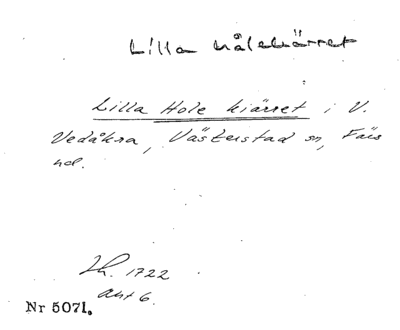 Lilla hålekärret
Lilla Hole kiärret i V.
Vedåkra, Västerstad sn, Färs
hd.
Lh. 1722
akt 6.
Nr 5071.